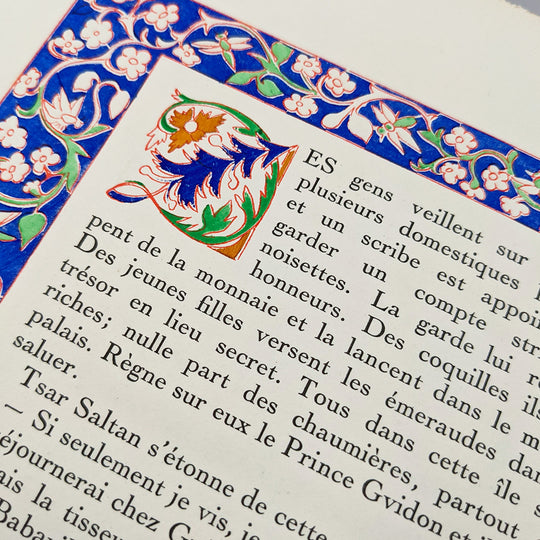 DES gens veillent sur
plusieurs domestiques
et un scribe est appoin
garder un compte stri
noisettes. La garde lui r
honneurs. Des coquilles ils
pent de la monnaie et la lancent dans le m
Des jeunes filles versent les émeraudes dan
trésor en lieu secret. Tous dans cette île s
riches; nulle part des chaumières, partout
palais. Règne sur eux le Prince Gvidon et il
saluer.
Tsar Saltan s'étonne de cette
— Si seulement je vis, je
éjournerai chez G
ais la tisseu
Baba